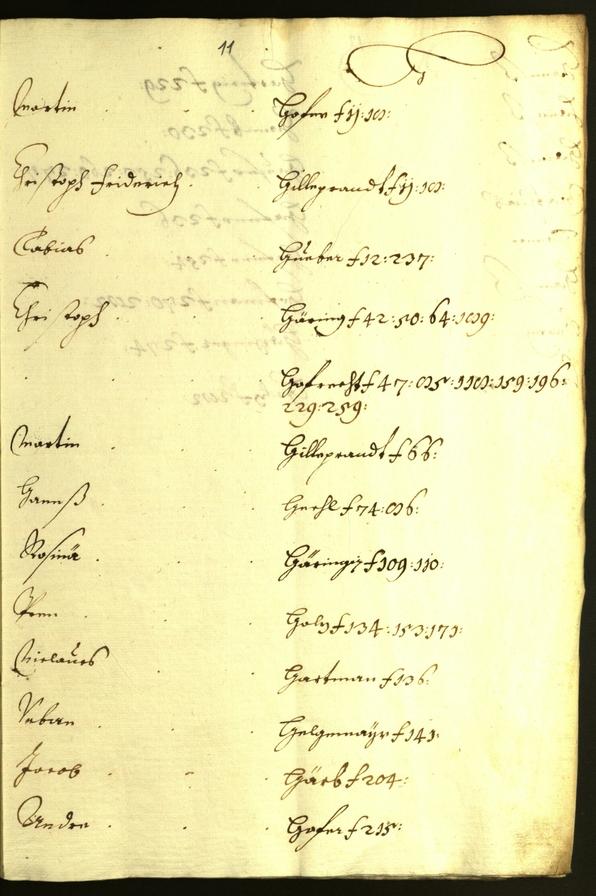 11
Martin Hofer f 11: 101:
Christoph Friderich Hilleprandt f 11: 101:
Tobias Hueber f 12: 237:
Christoph Häring f 42: 50: 64: 109:
Hofrecht f 47: 159: 196:
229: 259:
Martin Hilleprandt f 66:
Hannß Hechl f 74:
Rosina Häringin f 109: 110:
f 134: 153: 171:
Niclaues Hartman f 136:
Urban Helgemayr f 141:
Jacob Härb f 204:
Andre Hofer f 215: